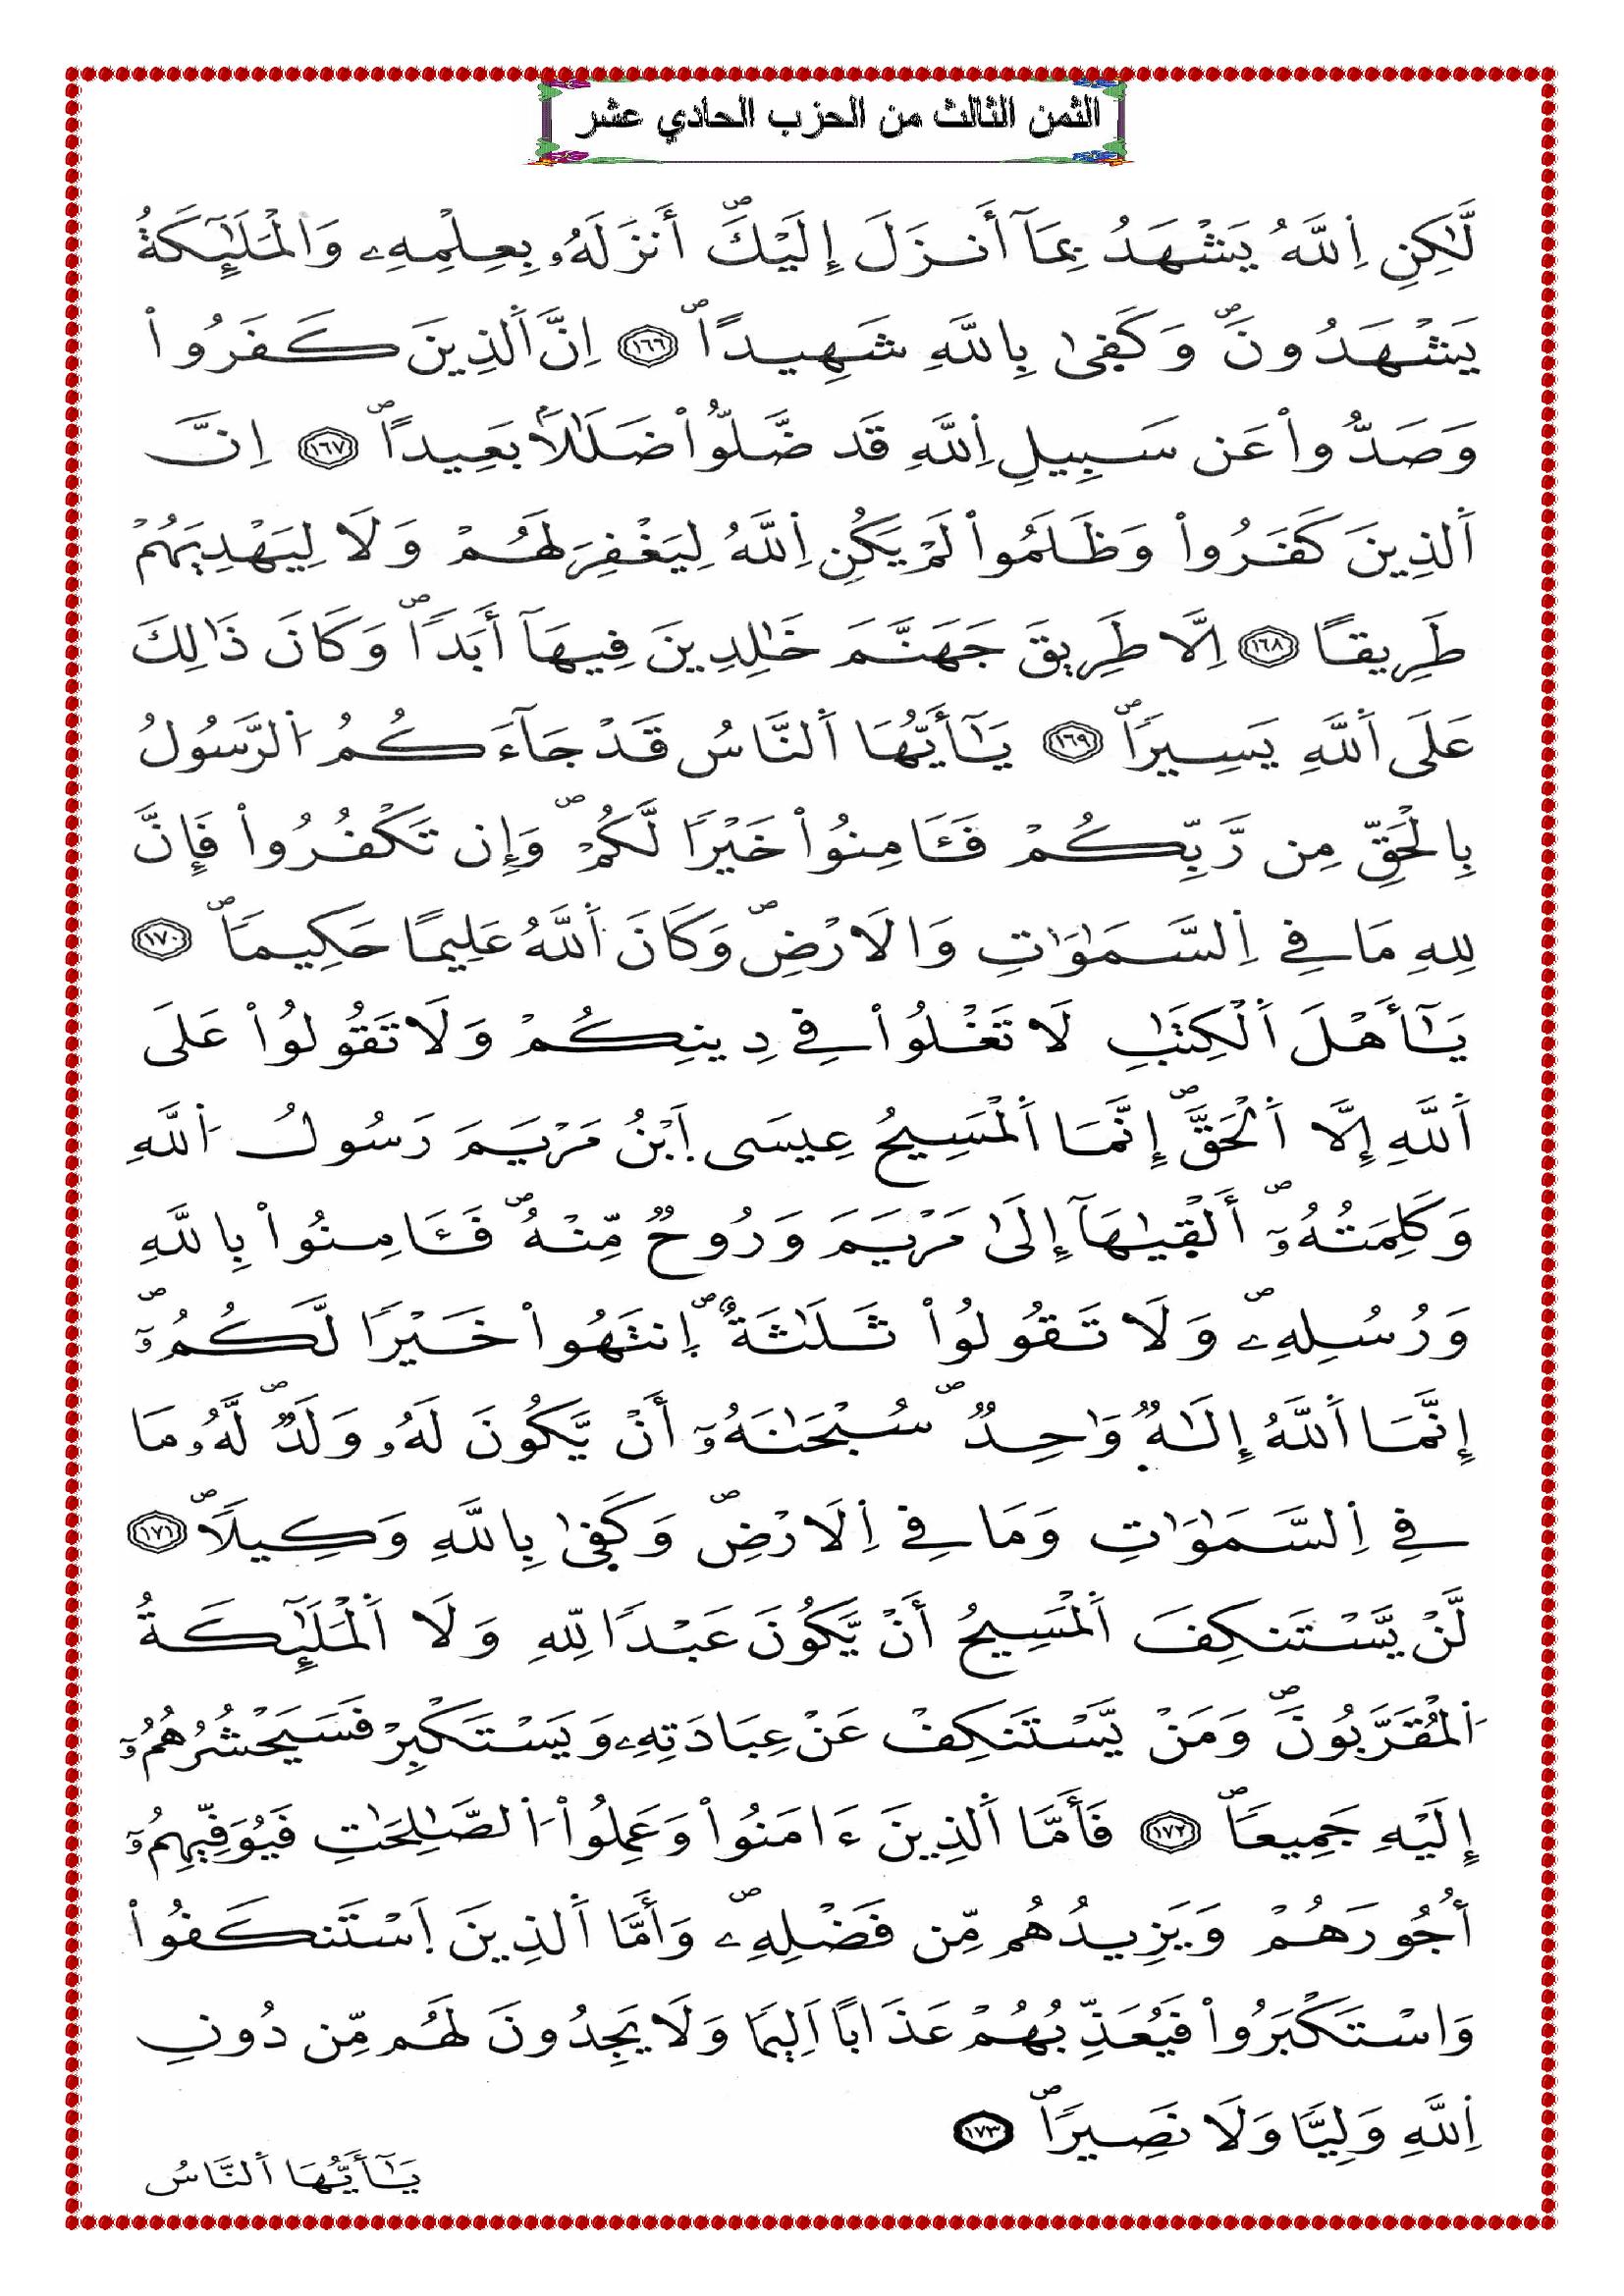 الثمن الثالث من الحزب الحادي عشر
لَّٰكِنِ اِ۬للَّهُ يَشْهَدُ بِمَآ أَنزَلَ إِلَيْكَۖ أَنزَلَهُۥ بِعِلْمِهِۦ وَالْمَلَٰٓئِكَةُ
يَشْهَدُونَۖ وَكَف۪ىٰ بِاللَّهِ شَهِيداًۖ ١٦٦ اِنَّ اَ۬لذِينَ كَفَرُواْ
وَصَدُّواْ عَن سَبِيلِ اِ۬للَّهِ قَد ضَّلُّواْ ضَلَٰلاَۢ بَعِيداًۖ ١٦٧ اِنَّ
اَ۬لذِينَ كَفَرُواْ وَظَلَمُواْ لَمْ يَكُنِ اِ۬للَّهُ لِيَغْفِرَ لَهُمْ وَلَا لِيَهْدِيَهُمْ
طَرِيقاً ١٦٨ اِلَّا طَرِيقَ جَهَنَّمَ خَٰلِدِينَ فِيهَآ أَبَداًۖ وَكَانَ ذَٰلِكَ
عَلَى اَ۬للَّهِ يَسِيراًۖ ١٦٩ يَٰٓأَيُّهَا اَ۬لنَّاسُ قَدْ جَآءَكُمُ اُ۬لرَّسُولُ
بِالْحَقِّ مِن رَّبِّكُمْ فَـَٔامِنُواْ خَيْراً لَّكُمْۖ وَإِن تَكْفُرُواْ فَإِنَّ
لِلهِ مَا فِے اِ۬لسَّمَٰوَٰتِ وَالَارْضِۖ وَكَانَ اَ۬للَّهُ عَلِيماً حَكِيماًۖ ١٧٠
يَٰٓأَهْلَ اَ۬لْكِتَٰبِ لَا تَغْلُواْ فِے دِينِكُمْ وَلَا تَقُولُواْ عَلَى
اَ۬للَّهِ إِلَّا اَ۬لْحَقَّۖ إِنَّمَا اَ۬لْمَسِيحُ عِيسَى اَ۪بْنُ مَرْيَمَ رَسُولُ اُ۬للَّهِ
وَكَلِمَتُهُۥٓۖ أَلْق۪يٰهَآ إِلَىٰ مَرْيَمَ وَرُوحٌ مِّنْهُۖ فَـَٔامِنُواْ بِاللَّهِ
وَرُسُلِهِۦۖ وَلَا تَقُولُواْ ثَلَٰثَةٌۖ اِ۪نتَهُواْ خَيْراً لَّكُمُۥٓۖ
إِنَّمَا اَ۬للَّهُ إِلَٰهٌ وَٰحِدٌۖ سُبْحَٰنَهُۥٓ أَنْ يَّكُونَ لَهُۥ وَلَدٌۖ لَّهُۥ مَا
فِے اِ۬لسَّمَٰوَٰتِ وَمَا فِے اِ۬لَارْضِۖ وَكَف۪ىٰ بِاللَّهِ وَكِيلاًۖ ١٧١
لَّنْ يَّسْتَنكِفَ اَ۬لْمَسِيحُ أَنْ يَّكُونَ عَبْداً لِّلهِ وَلَا اَ۬لْمَلَٰٓئِكَةُ
اُ۬لْمُقَرَّبُونَۖ وَمَنْ يَّسْتَنكِفْ عَنْ عِبَادَتِهِۦ وَيَسْتَكْبِرْ فَسَيَحْشُرُهُمُۥٓ
إِلَيْهِ جَمِيعاًۖ ١٧٢ فَأَمَّا اَ۬لذِينَ ءَامَنُواْ وَعَمِلُواْ اُ۬لصَّٰلِحَٰتِ فَيُوَفِّيهِمُۥٓ
أُجُورَهُمْ وَيَزِيدُهُم مِّن فَضْلِهِۦۖ وَأَمَّا اَ۬لذِينَ اَ۪سْتَنكَفُواْ
وَاسْتَكْبَرُواْ فَيُعَذِّبُهُمْ عَذَاباً اَلِيماً وَلَا يَجِدُونَ لَهُم مِّن دُونِ
اِ۬للَّهِ وَلِيّاً وَلَا نَصِيراًۖ ١٧٣
يَٰٓأَيُّهَا اَ۬لنَّاسُ